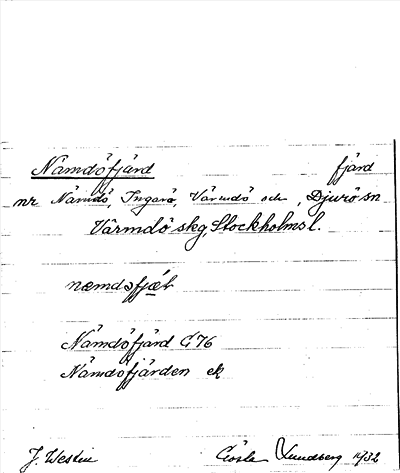 Nämdöfjärd fjärd
nr Nämdö, Ingarö, Värmdö och, Djurö sn
Värmdö skg, Stockholms l.
næmdøfjæ̱ḷ
Nämdöfjärd G76
Nämdöfjärden ek
J. Westin Gösta Lundberg 1932